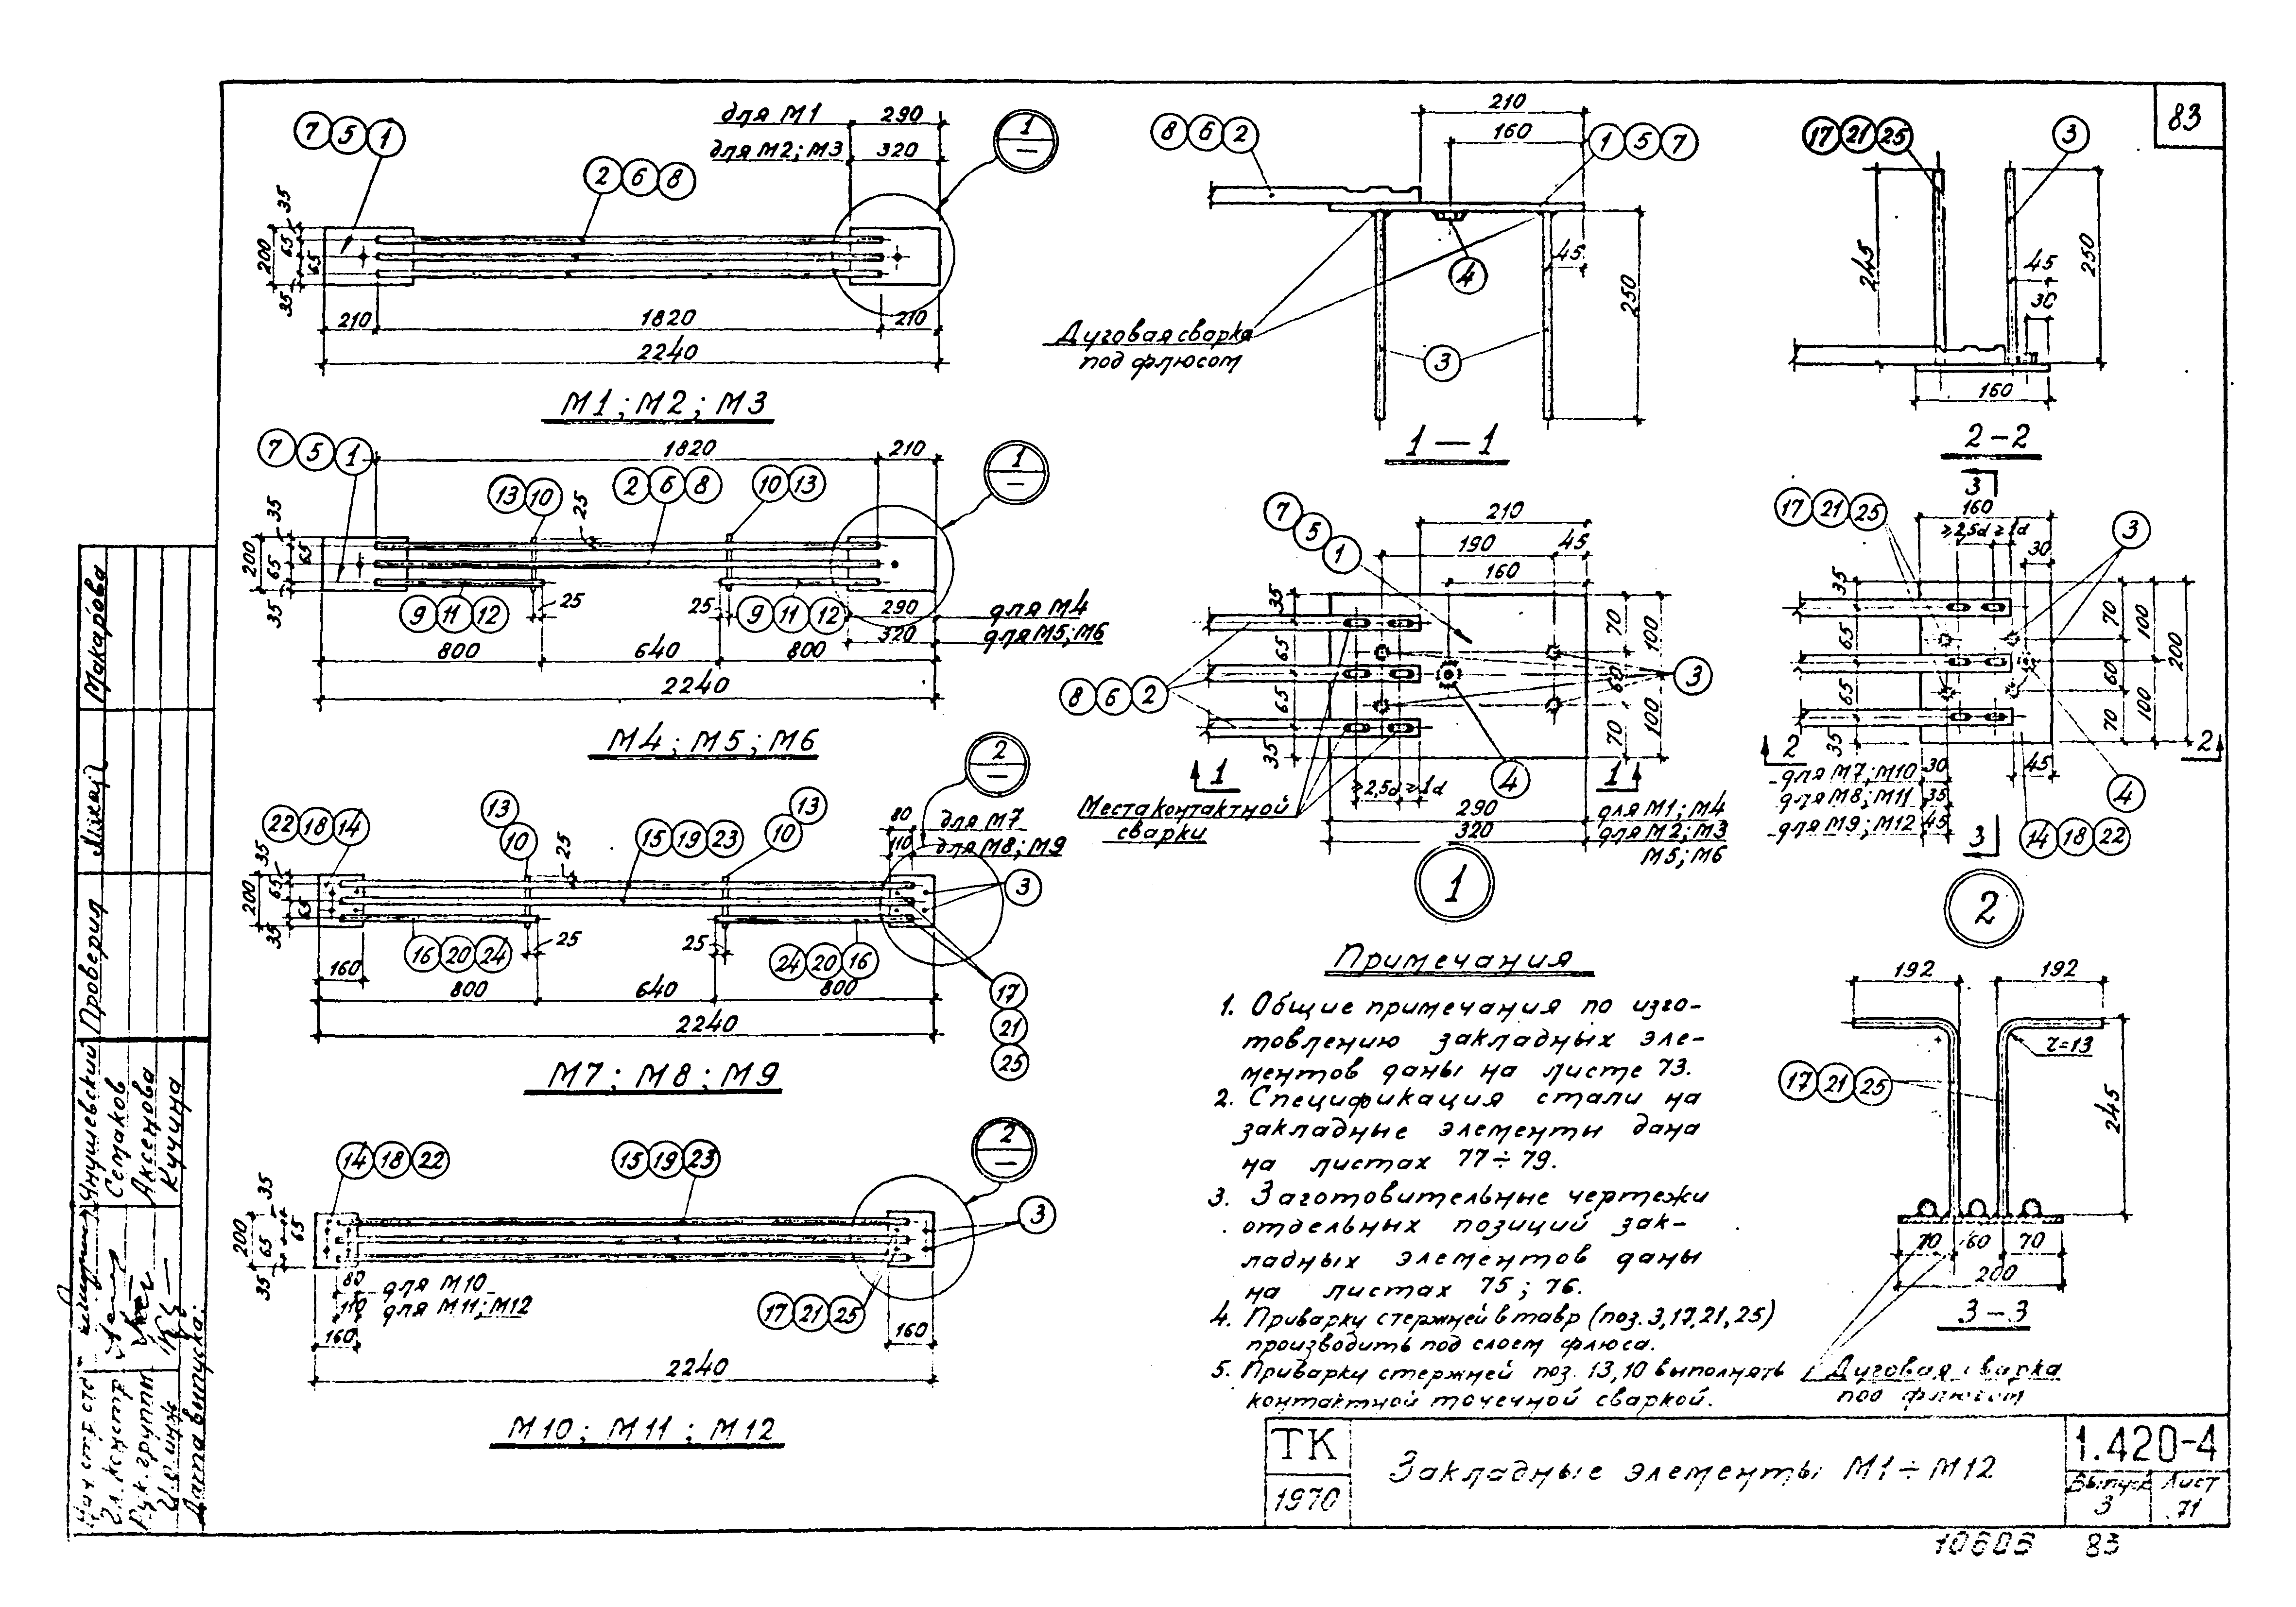 83
7 5 1
для М1 290
для М2; М3 320
1
2 6 8
35
65
200
65
35
210 1820 210
2240
М1; М2; М3
7 5 1
1820 210
1
13 10
25
2 6 8
10 13
35
200
65
65
35
9 11 12
25
25
9 11 12
290 для М4
320 для М5; М6
800 640 800
2240
М4; М5; М6
2
22 18 14
13
10
25
15 19 23
13
10
80 для М7
110 для М8; М9
3
35
65
200
65
35
16 20 24
25
25
24 20 16
160
800 640 800
2240
17
21
25
М7; М8; М9
2
14 18 22
15 19 23
3
35
200
65
65
35
80 для М10
110 для М11; М12
160
17 21 25
160
2240
М10; М11; М12
8 6 2
210
160
1 5 7
45
4
250
Дуговая сварка
под флюсом
3
1—1
17 21 25
3
245
45
30
250
160
2-2
7
5
1
210
190 45
160
35
65
65
35
70
60
70
100
100
8 6 2
3
4
1
1
≥2,5d ≥1d
Места контактной
сварки
290 для М1; М4
320 для М2; М3
М5; М6
1
3
17 21 25
160
≥2,5d ≥1d
30
3
35
65
65
35
70
60
70
100
100
200
2
2
45
для М7; М10 30
для М8; М11 35
для М9; М12 45
4
3
14 18 22
2
192 192
r=13
17 21 25
245
70 60 70
200
3-3
Дуговая сварка
под флюсом
Примечания
1. Общие примечания по изго-
товлению закладных эле-
ментов даны на листе 73.
2. Спецификация стали на
закладные элементы дана
на листах 77÷79.
3. Заготовительные чертежи
отдельных позиций зак-
ладных элементов даны
на листах 75; 76.
4. Приварку стержней в тавр (поз. 3,17,21,25)
производить под слоем флюса.
5. Приварку стержней поз. 13,10 выполнять
контактной точечной сваркой.
ТК
1970
Закладные элементы М1÷М12
1.420-4
Выпуск Лист
3 71
10686 83
Проверил Макарова
Нач. стр. отд.
Гл. констр. Семаков
Рук. группы Аксенова
Дата выпуска: